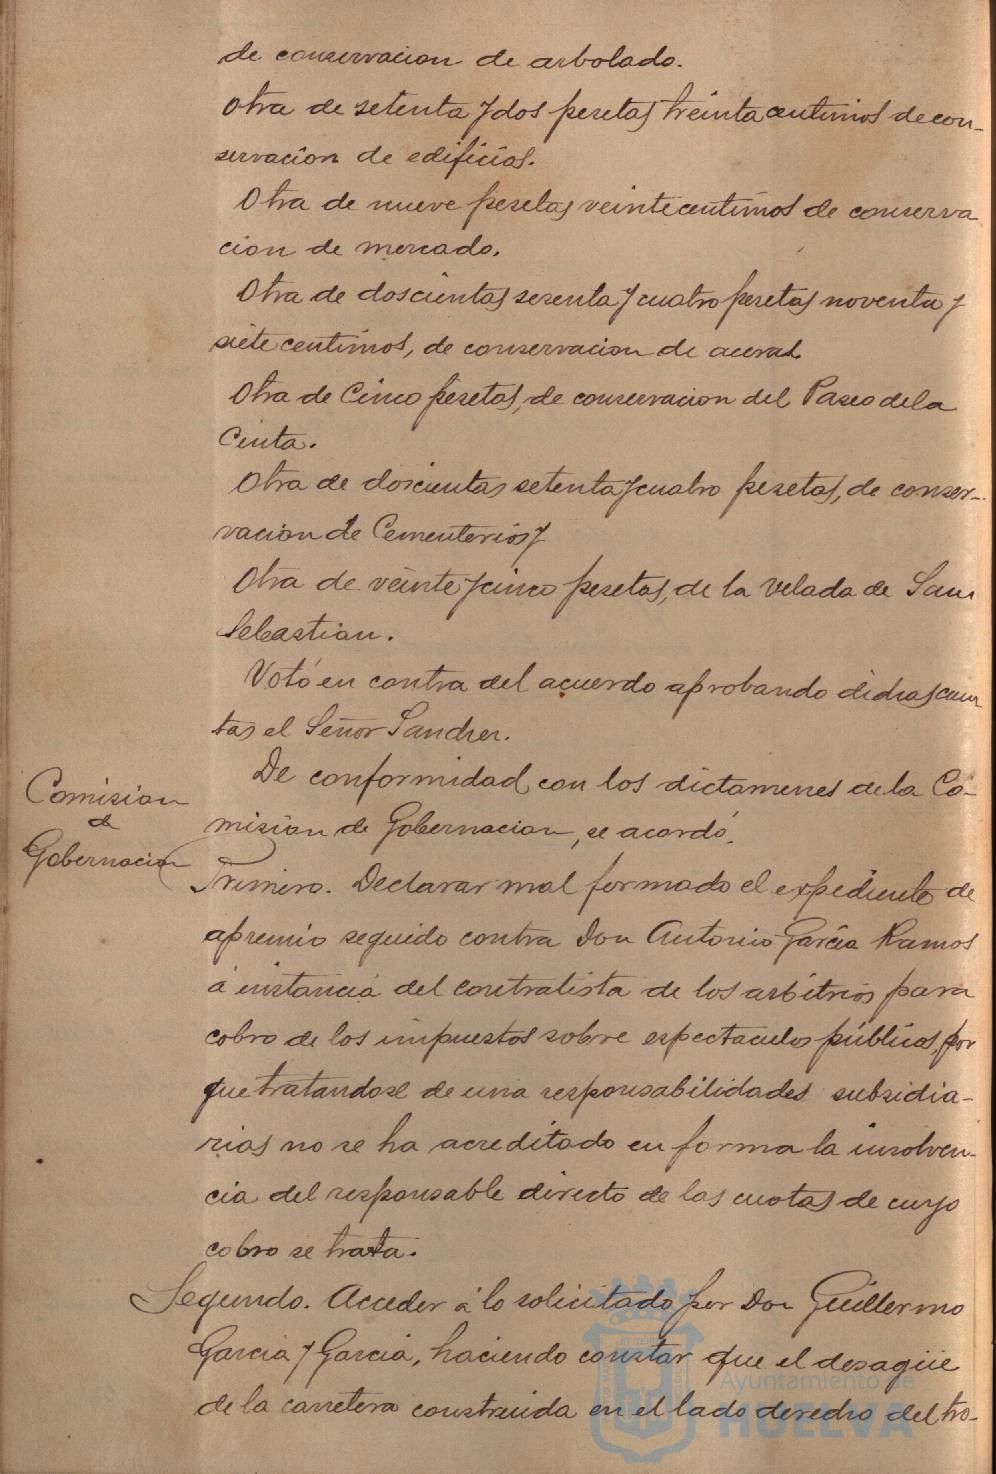 de conservacion de arbolado.
Otra de setenta y dos pesetas treinta centimos de con-
servacion de edificios.
Otra de nueve pesetas veinte centimos de conserva
cion de mercado.
Otra de doscientas sesenta y cuatro pesetas noventa y
siete centimos, de conservacion de aceras.
Otra de Cinco pesetas, de conservacion del Paseo de la
Cinta.
Otra de doscientas setenta y cuatro pesetas, de conser-
vacion de Cementerios y
Otra de veinte y cinco pesetas, de la Velada de San
Sebastian.
Votó en contra del acuerdo aprobando dichas cuen
tas el Señor Sanchez.
De conformidad con los dictamenes de la Co-
mision de Gobernacion, se acordó.
Comision
de
Gobernacion
Primero. Declarar mal formado el expediente de
apremio seguido contra Don Antonio García Ramos
á instancia del contratista de los arbitrios para
cobro de los impuestos sobre espectaculos públicos, por
que tratandose de una responsabilidades subsidia-
rias no se ha acreditado en forma la insolven-
cia del responsable directo de las cuotas de cuyo
cobro se trata.
Segundo. Acceder á lo solicitado por Don Guillermo
Garcia y Garcia, haciendo constar que el desagüe
de la carretera construida en el lado derecho del tro-
Ayuntamiento de
HUELVA